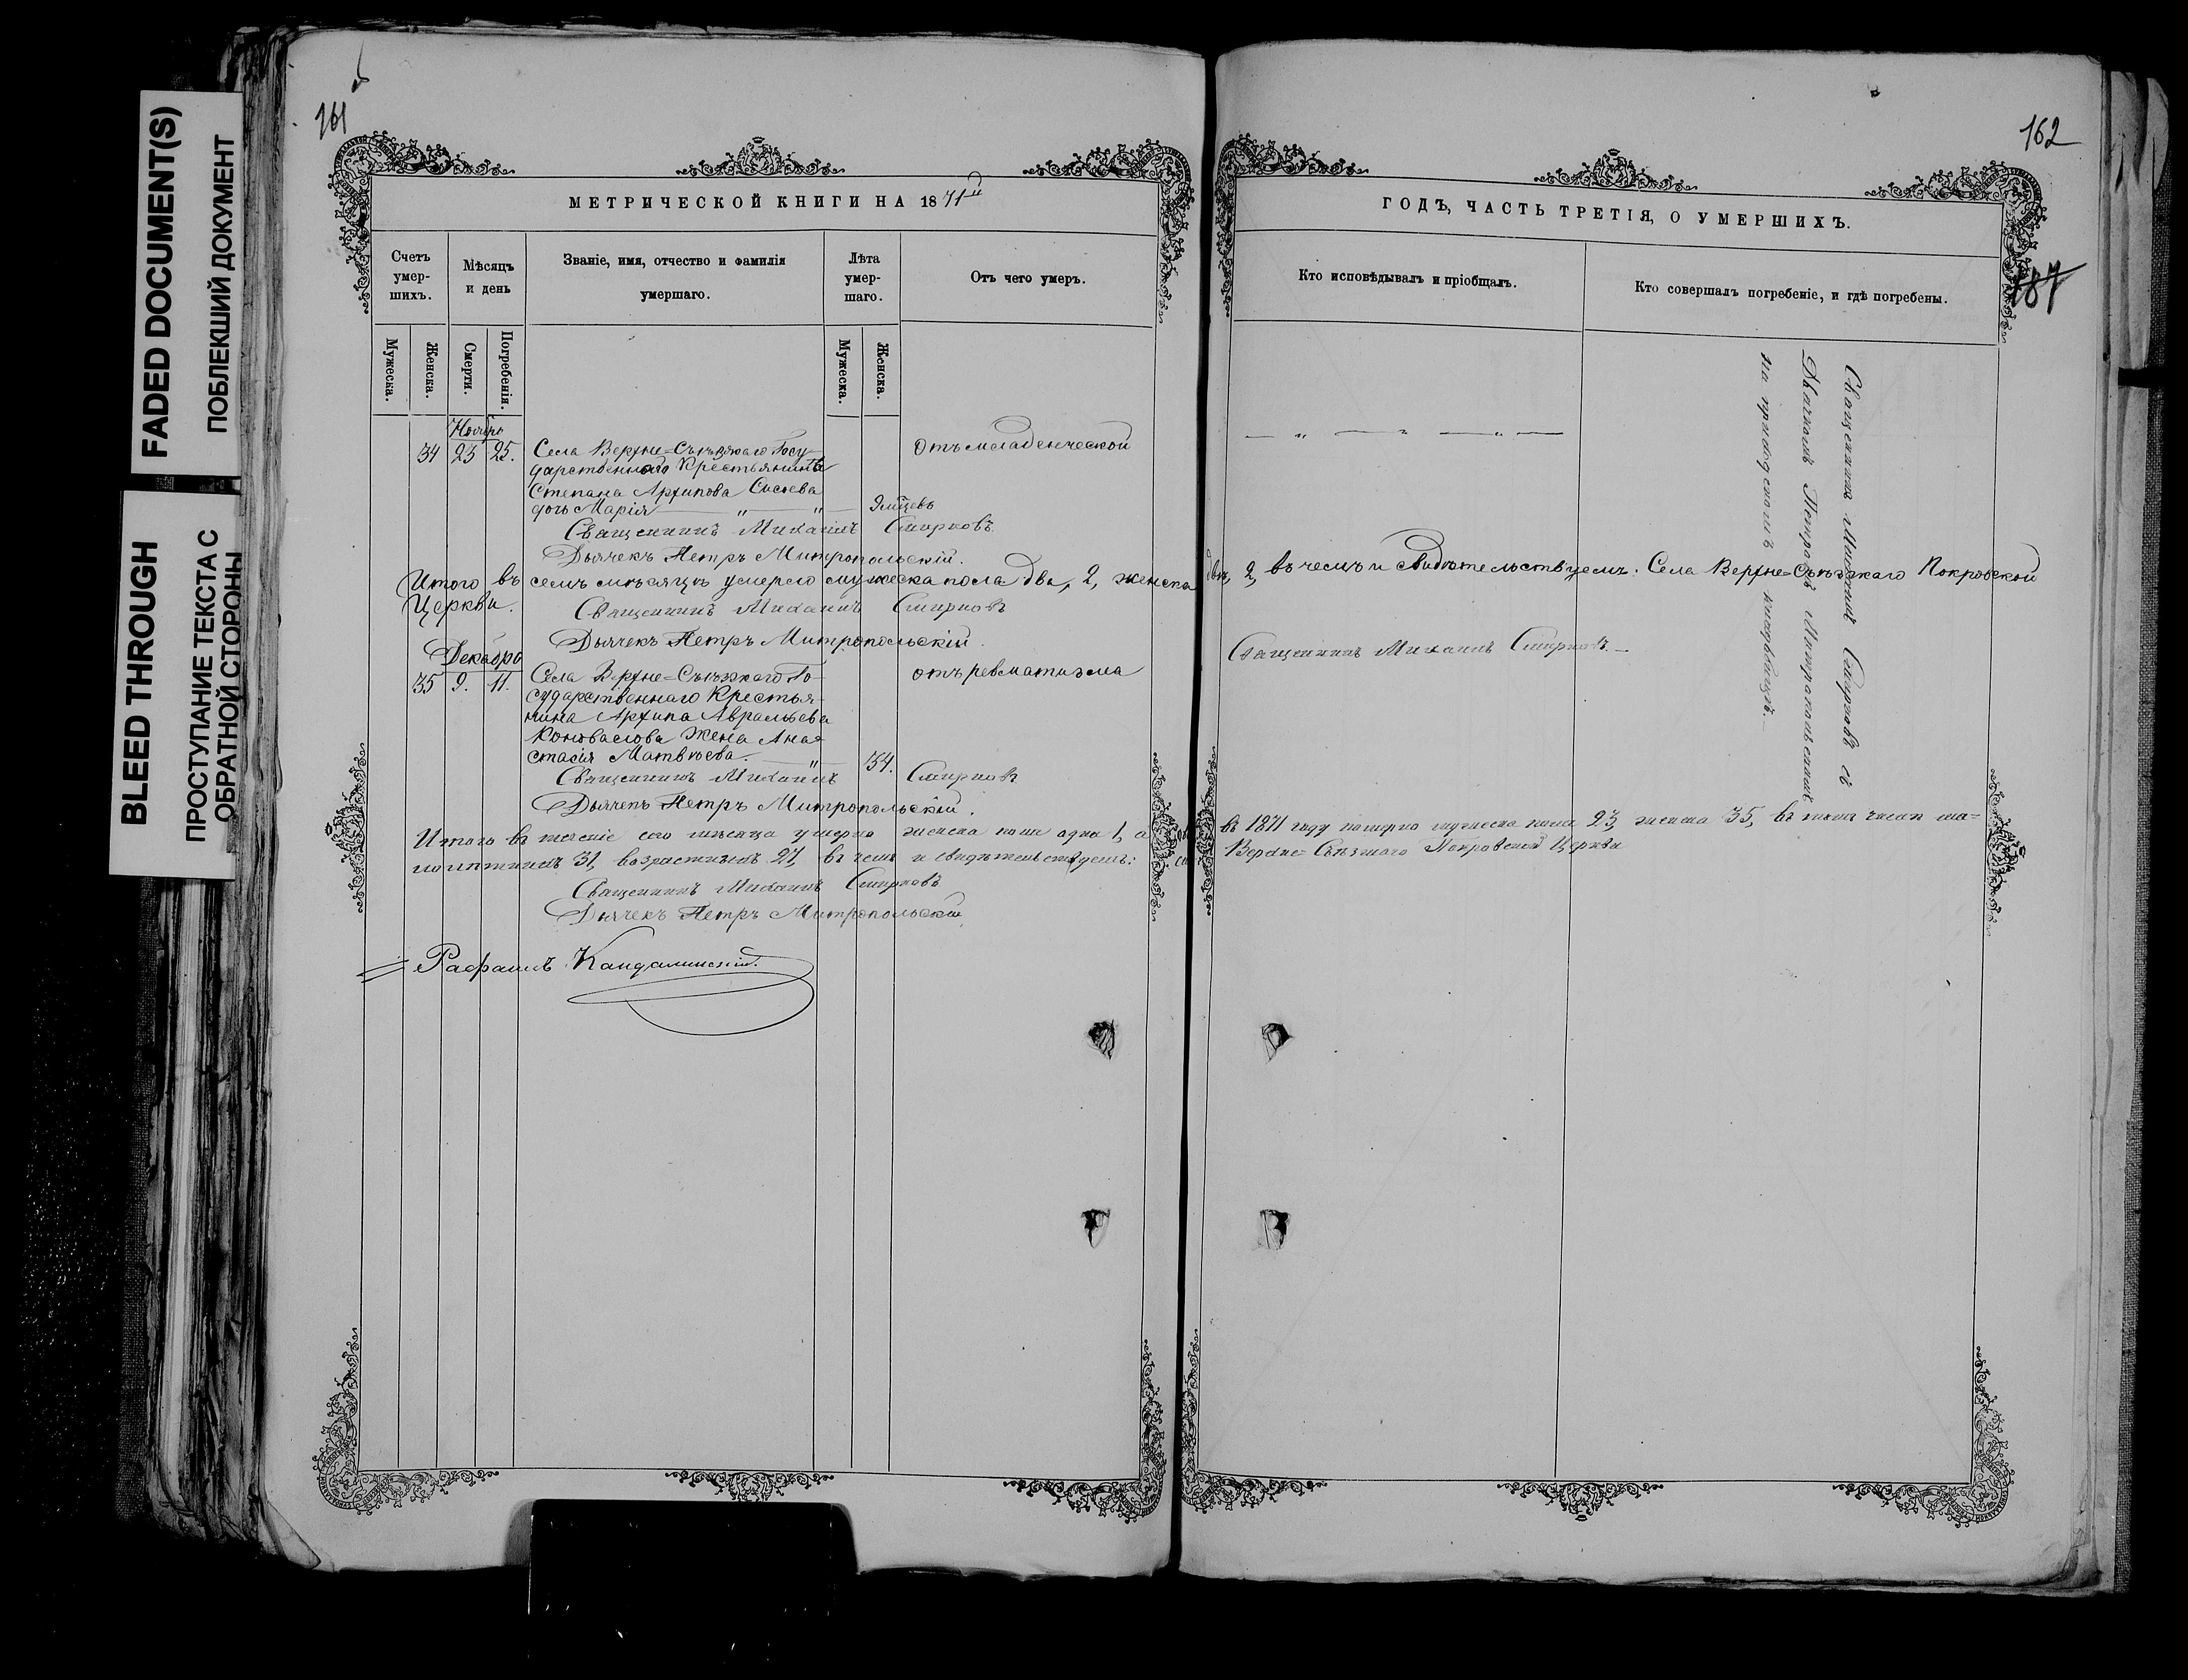 FADED DOCUMENT(S)
ПОБЛЕКШИЙ ДОКУМЕНТ
BLEED THROUGH
ПРОСТУПАНИЕ ТЕКСТА С
ОБРАТНОЙ СТОРОНЫ
161
МЕТРИЧЕСКОЙ КНИГИ НА 1871й
Счетъ умер-шихъ.
Мѣсяцъ и день
Званіе, имя, отчество и фамилія умершаго.
Лѣта умер-шаго.
Отъ чего умеръ.
Мужеска.
Женска.
Смерти.
Погребенія.
Мужеска.
Женска.
Ноября
34 23 25. Села Верхне-Съѣзжаго Госу- Отъ младенческой
дарственнаго Крестьянина
Степана Архипова Сысоева
дочь Марія
Священникъ Михаилъ Смирновъ
Дьячекъ Петръ Митропольскій.
Итого въ семъ мѣсяцѣ умерло мужеска пола два, 2, женска
Церкви. Священникъ Михаилъ Смирновъ
Дьячекъ Петръ Митропольскій.
Декабря
35 9. 11. Села Верхне-Съѣзжаго Го- отъ ревматизма
сударственнаго Крестья-
нина Архипа
жена Ана-
стасія Матвѣева. 34.
Священникъ Михаилъ Смирновъ
Дьячекъ Петръ Митропольскій.
Итого въ теченіе сего мѣсяца умерло женска пола одна 1, а
лолѣтнихъ 31, возрастныхъ 27, въ чемъ и свидѣтельствуемъ:
Священникъ Михаилъ Смирновъ
Дьячекъ Петръ Митропольскій
Рафаилъ Кандалинскій.
162
187
ГОДЪ, ЧАСТЬ ТРЕТІЯ, О УМЕРШИХЪ.
Кто исповѣдывалъ и пріобщалъ.
Кто совершалъ погребеніе, и гдѣ погребены.
Священникъ Михаилъ Смирновъ съ
Дьячкомъ Петромъ Митропольскимъ
на приходскомъ кладбищѣ.
двѣ, 2, въ чемъ и свидѣтельствуемъ: Села Верхне-Съѣзжаго Покровской
Священникъ Михаилъ Смирновъ.
въ 1871 году померло мужеска пола 23, женска 35, въ томъ числѣ ма-
Верхне-Съѣзжаго Покровской Церкви